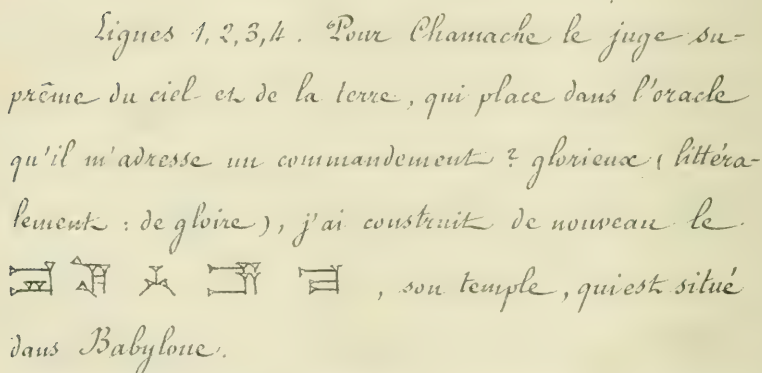 Lignes 1, 2, 3, 4. Pour Chamache le juge su-
prême du ciel et de la terre, qui place dans l'oracle
qu'il m'adresse un commandement ? glorieux (littéra-
lement : de gloire), j'ai construit de nouveau le
𒂍 𒁲 𒋻 𒌦 𒈠 , son temple, qui est situé
dans Babylone.